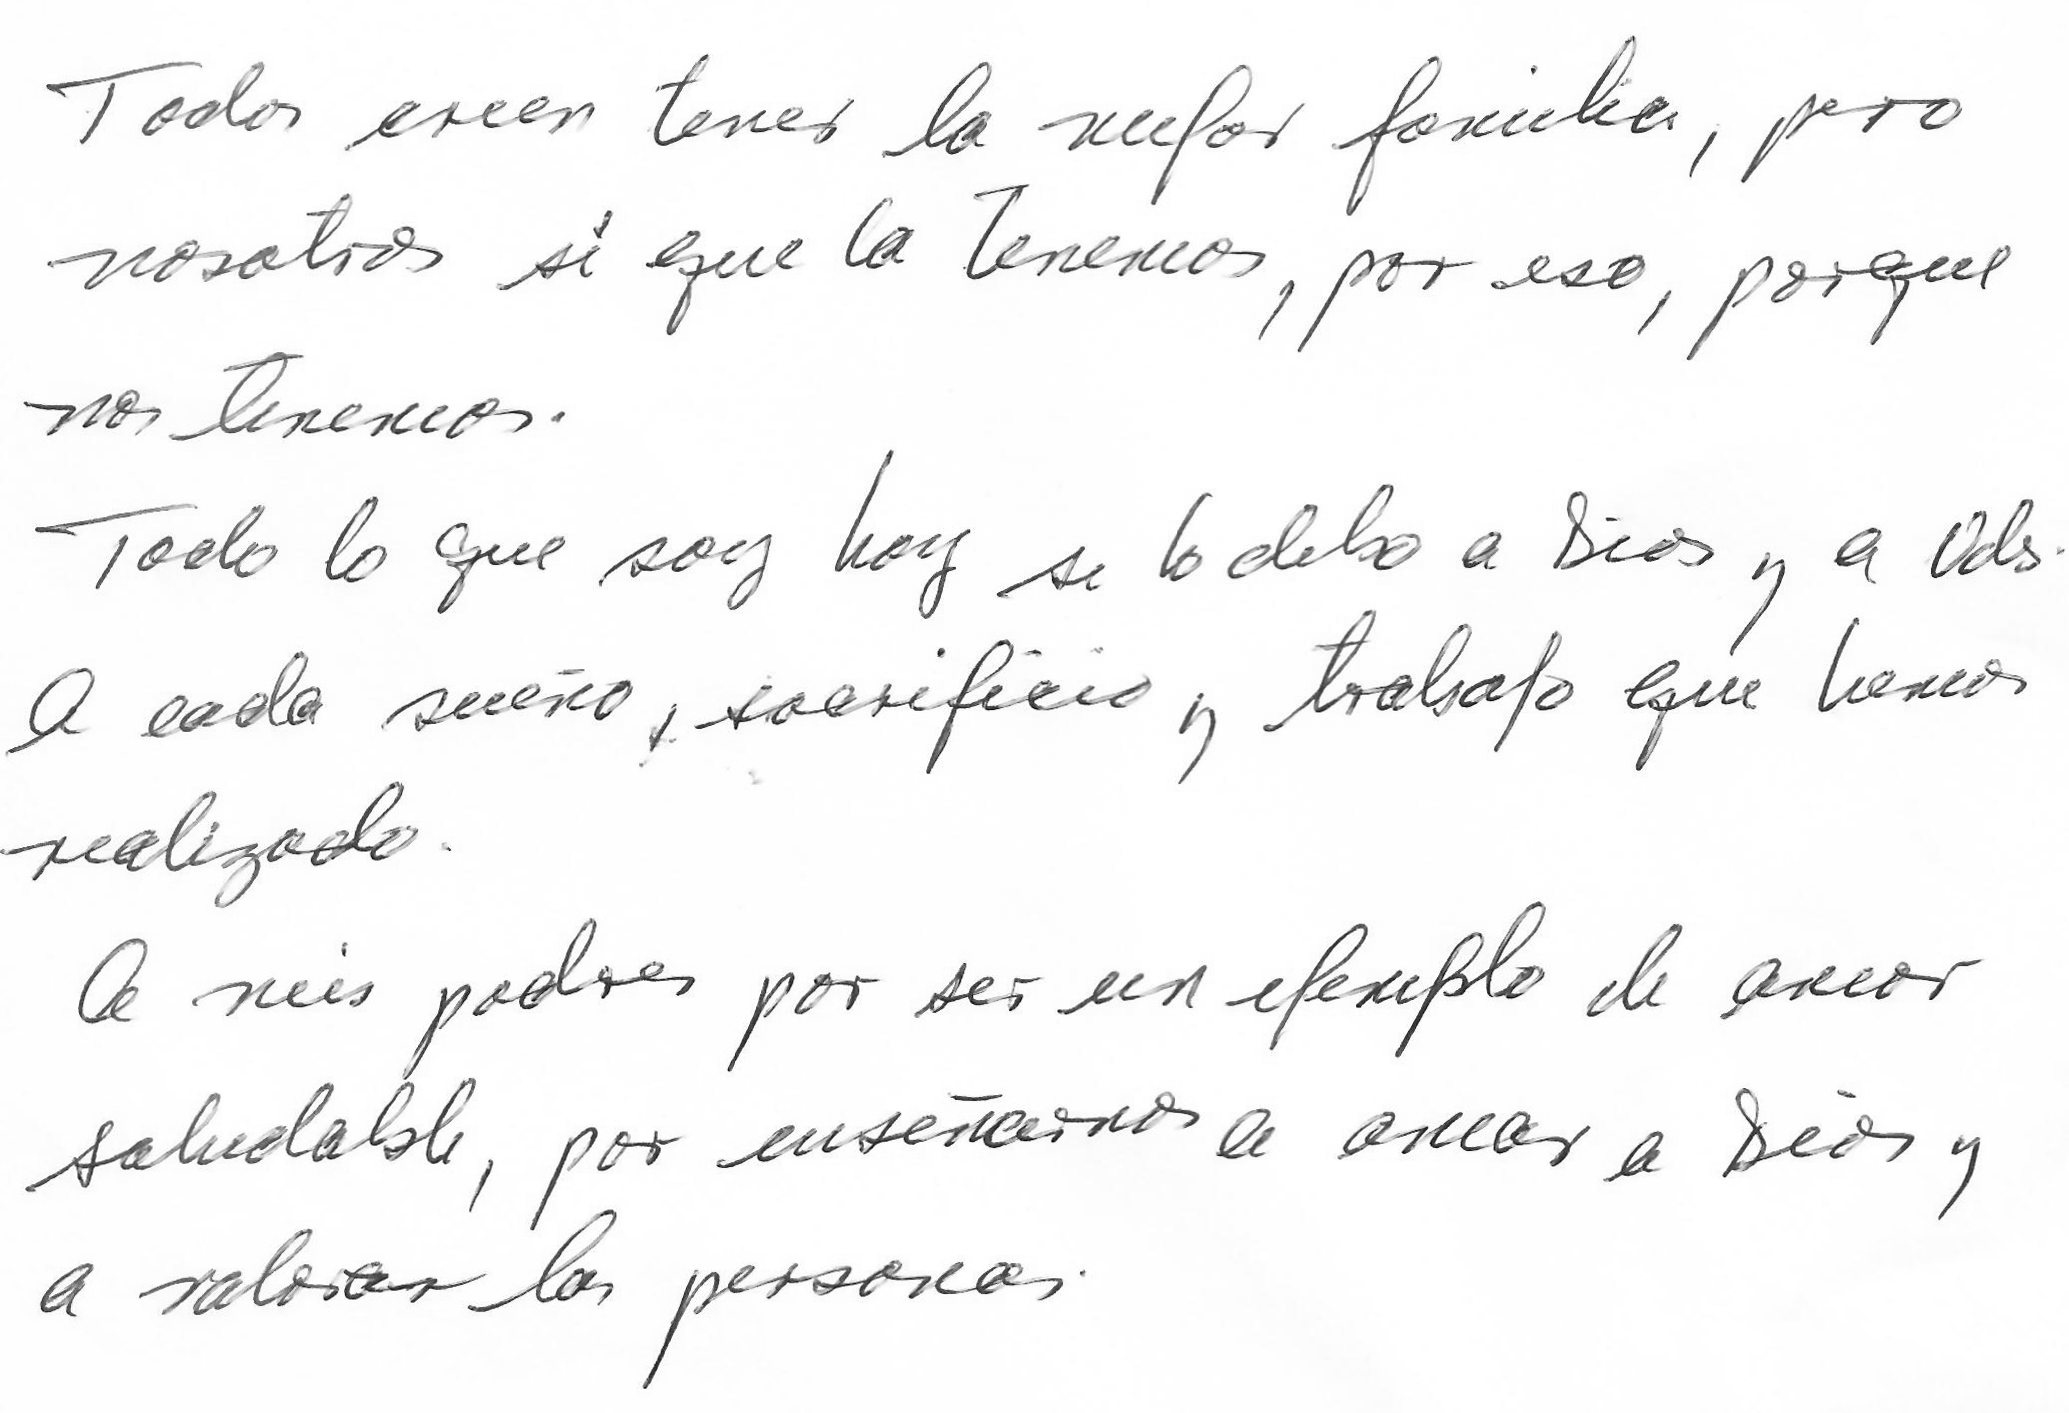 Todos creen tener la mejor familia, pero
nosotros sí que la tenemos, por eso, porque
nos tenemos.
Todo lo que soy hoy se lo debo a Dios y a Uds.
A cada sueño, sacrificio y trabajo que hemos
realizado.
A mis padres por ser un ejemplo de amor
saludable, por enseñarnos a amar a Dios y
a valorar las personas.